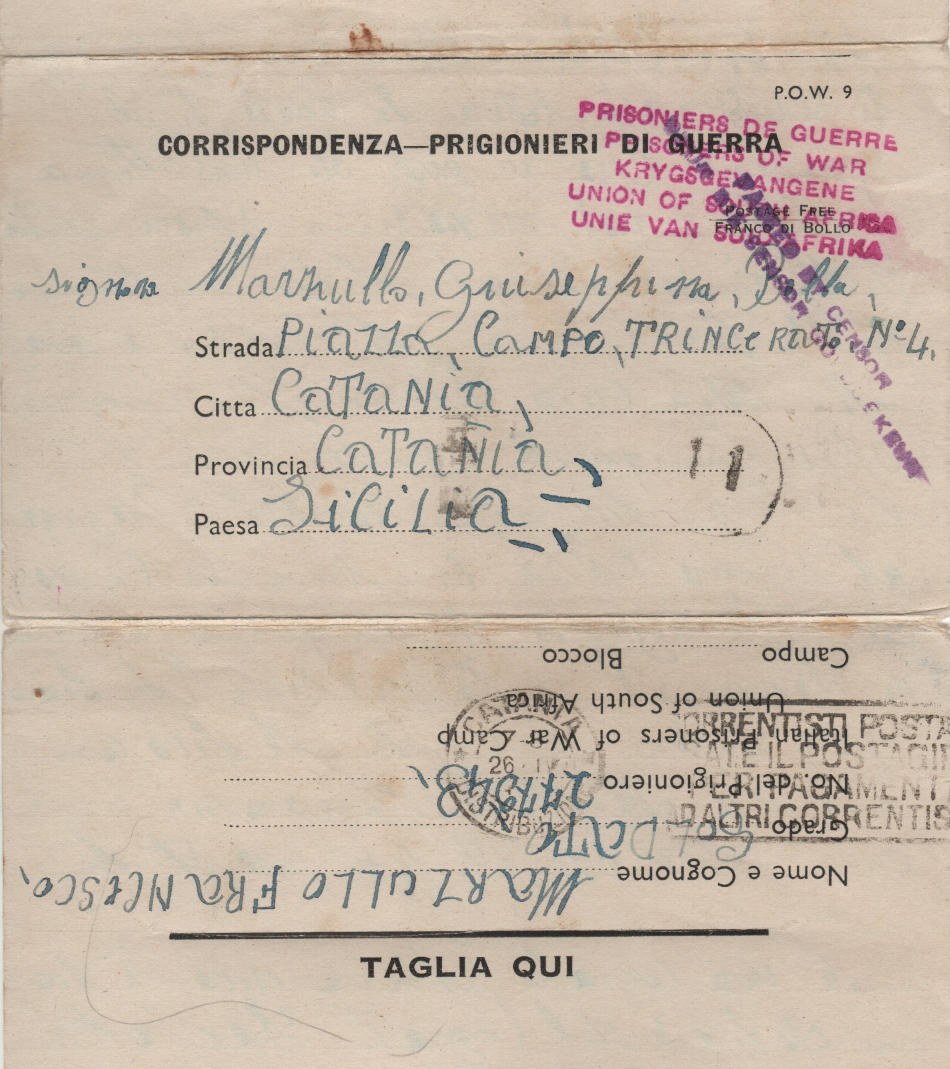 P.O.W. 9
CORRISPONDENZA—PRIGIONIERI DI GUERRA
PRISONIERS DE GUERRE
PRISONERS OF WAR
KRYGSGEVANGENE
UNION OF SOUTH AFRICA
UNIE VAN SUID AFRIKA
POSTAGE FREE
FRANCO DI BOLLO
PASSED BY CENSOR
DEUR SENSOR
Signora Marzullo, Giuseppina,
Strada Piazza, Campo, TRINCERATO, No. 4.
Citta CATANIA,
Provincia CATANIA
Paesa SICILIA
11
TAGLIA QUI
Nome e Cognome MARZULLO FRANCESCO,
Grado SOLDATO
No. del Prigioniero
Italian Prisoners of War Camp
Union of South Africa
Campo Blocco
CATANIA
26 IV
CORRENTISTI POSTA
ATE IL POSTAGI
PER PAGAMENT
AD ALTRI CORRENTIS